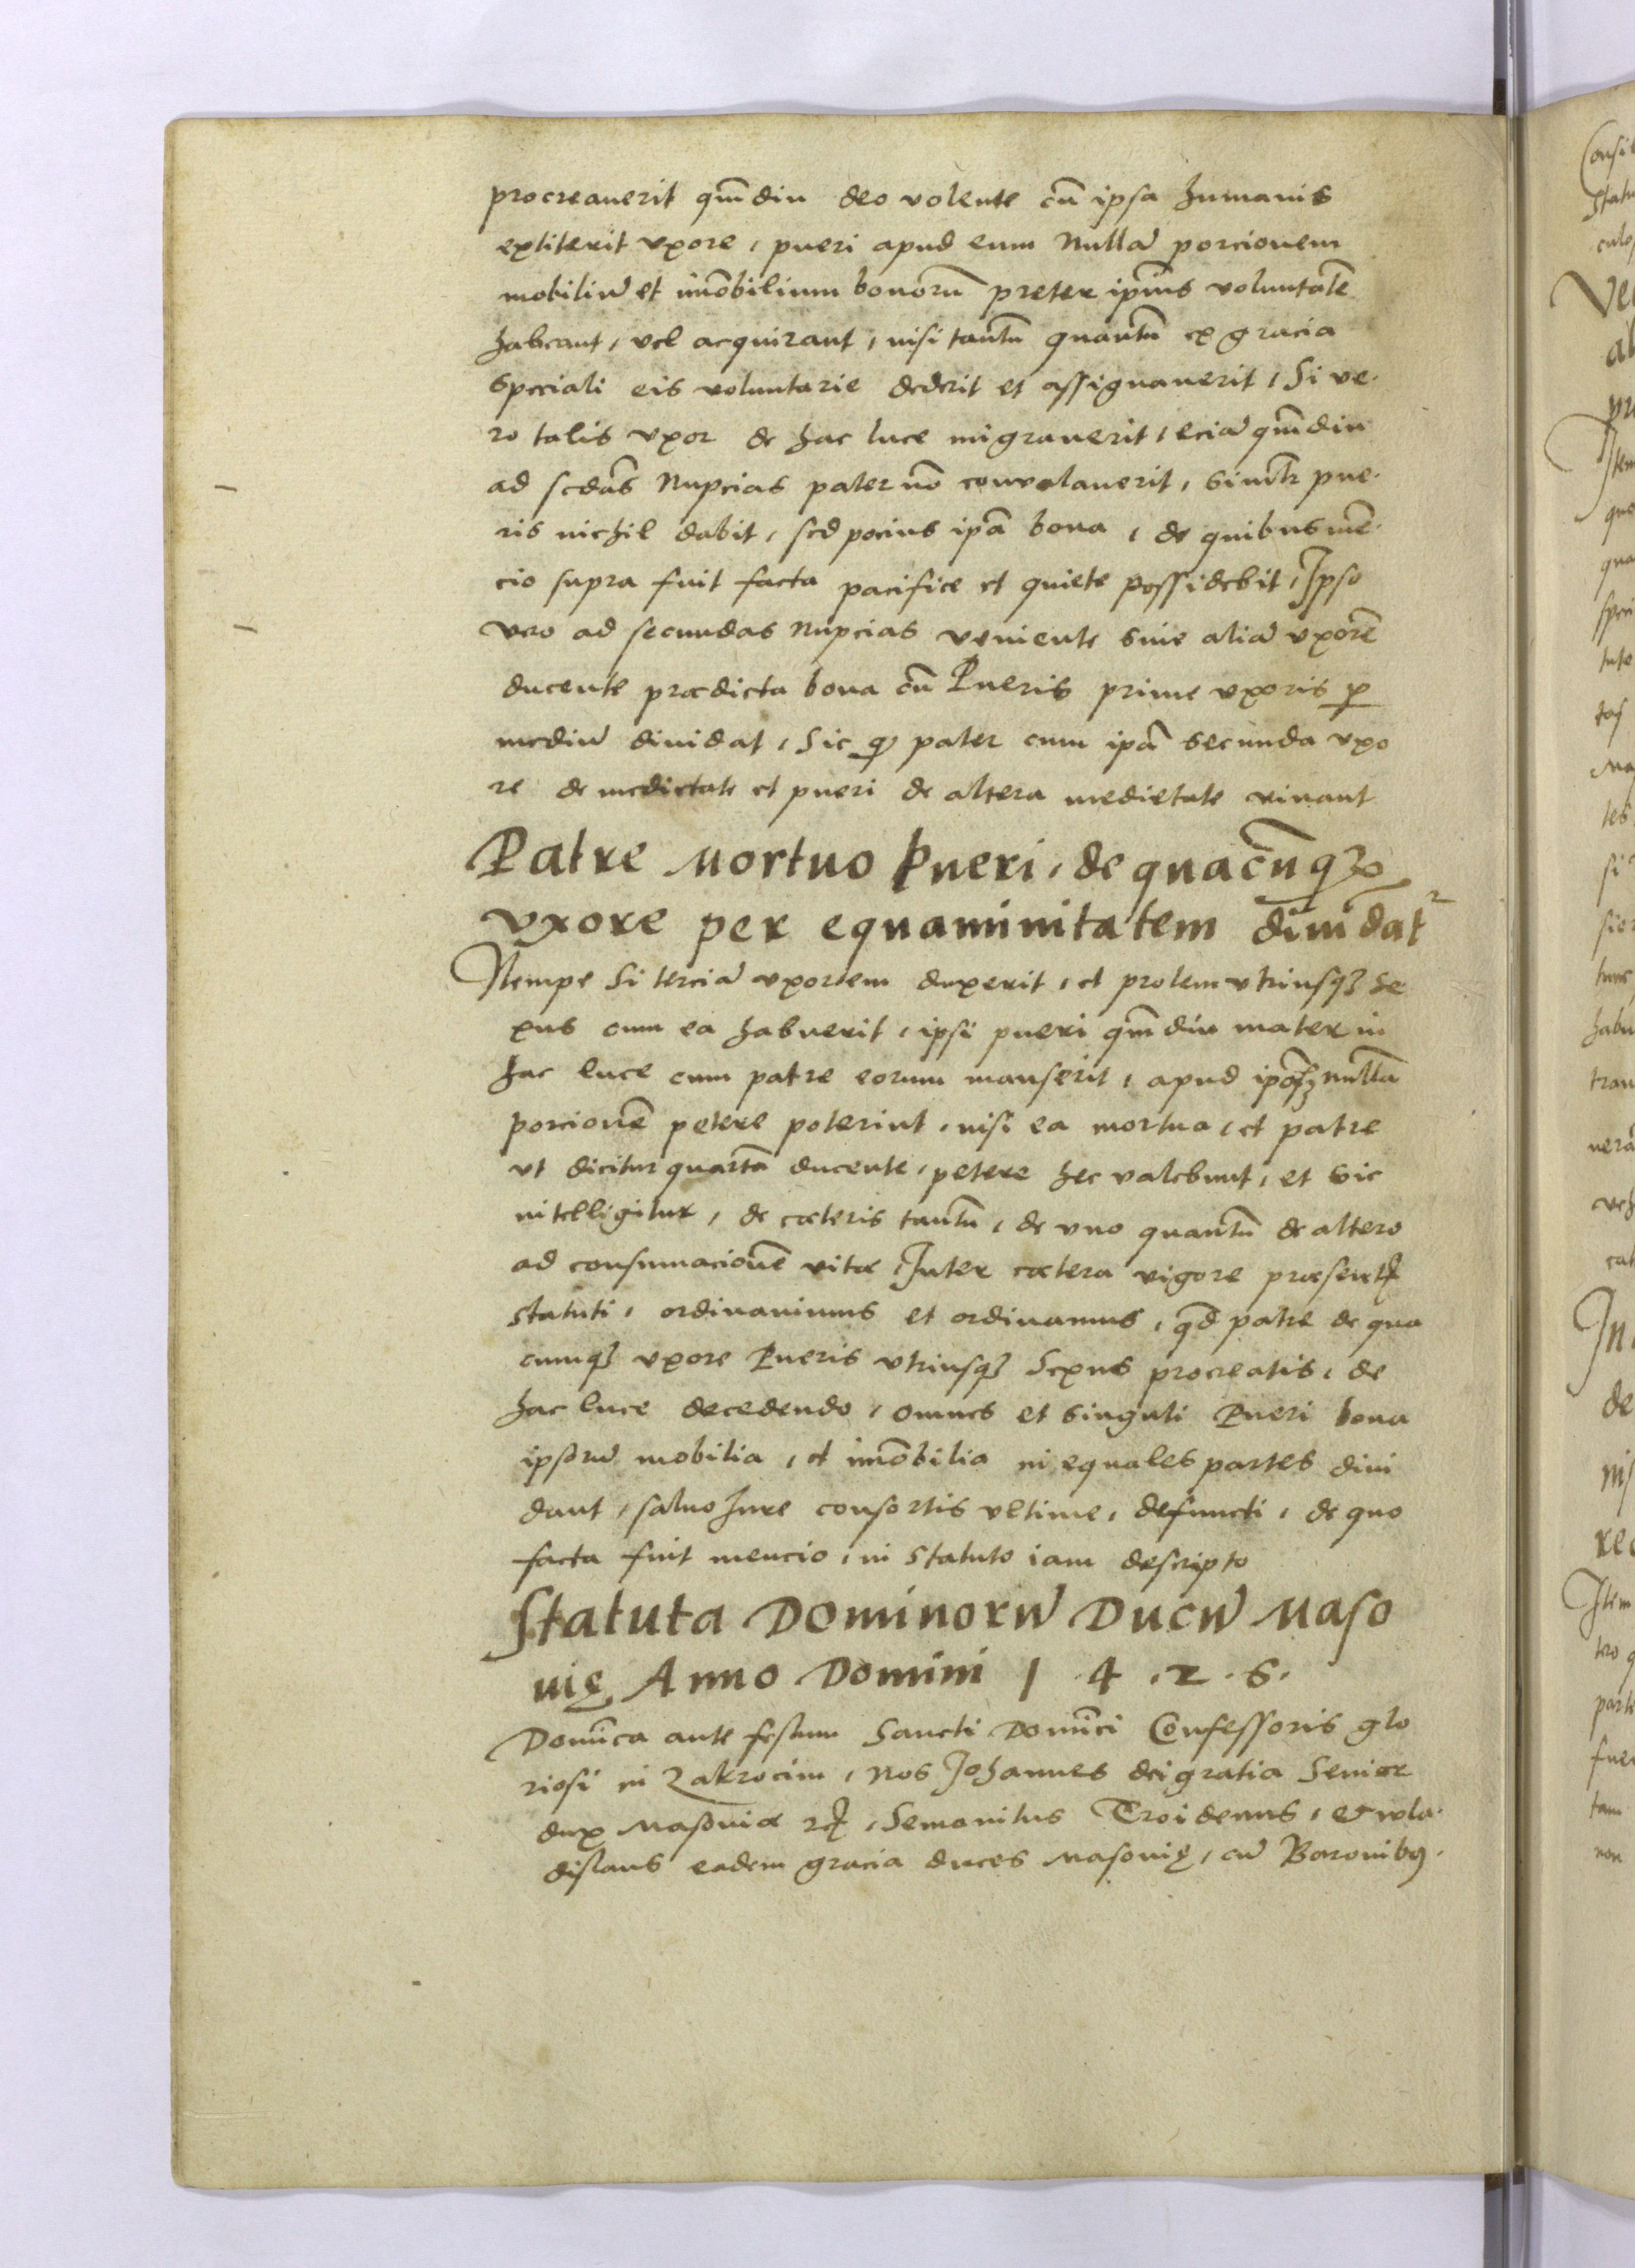 procreauerit qm̄diu deo volente cū ipsa humanis
extiterit vxore, pueri apud eum nullā porcionem
mobiliū et im̄obilium bonorū preter ip̄ius voluntatē
habeant, vel acquirant, nisi tantū quantū ex gracia
speciali eis voluntarie dederit et assignauerit, Si ve-
ro talis vxor de hac luce migrauerit, eciā qm̄diu
ad scdās nupcias pater nō conuolauerit, simlr̄ pue-
ris nichil dabit, sed pocius ip̄a bona, de quibus mē-
cio supra fuit facta pacifice et quiete possidebit, Ipso
vero ad secundas nupcias veniente siue aliā vxorē
ducente prædicta bona cū Pueris prime vxoris ꝑ
mediū diuidat, Sic ꝙ pater cum ip̄a secunda vxo
re de medietate et pueri de altera medietate viuant
Patre mortuo pueri, de quacūqꝫ
vxore per equanimitatem diuidāt²
Nempe Si terciā vxorem duxerit, et prolem vtriusqꝫ se
xus cum ea habuerit, ipsi pueri qm̄diu mater in
hac luce cum patre eorum manserit, apud ipōs nullā
porcionē petere poterint, nisi ea mortua, et patre
vt dicitur quartā ducente, petere hec valebunt, et sic
intelligitur, de cæteris tantū, de vno quantū de altero
ad consumacionē vitæ, Inter cætera vigore præsentꝭ
statuti, ordinauimus et ordinamus, qd̄ patre de qua
cumqꝫ vxore Pueris vtriusqꝫ Sexus procreatis, de
hac luce decedendo, omnes et singuli Pueri bona
ipsorū mobilia, et im̄obilia in equales partes diui
dant, saluo Jure consortis vltime, defuncti, de quo
facta fuit mencio, in statuto iam descripto
Statuta Dominorū Ducū Maso
uię Anno Domini 1 4 . 2 . 6 .
Domīca ante festum Sancti Domīci Confessoris glo
riosi in Zakrocim, Nos Johannes dei gratia Senior
dux Masouiæ ꝛcꝭ, Semouitus Troidenus, et wla-
dislaus eadem gracia duces Masouię, cū Baronibꝯ.